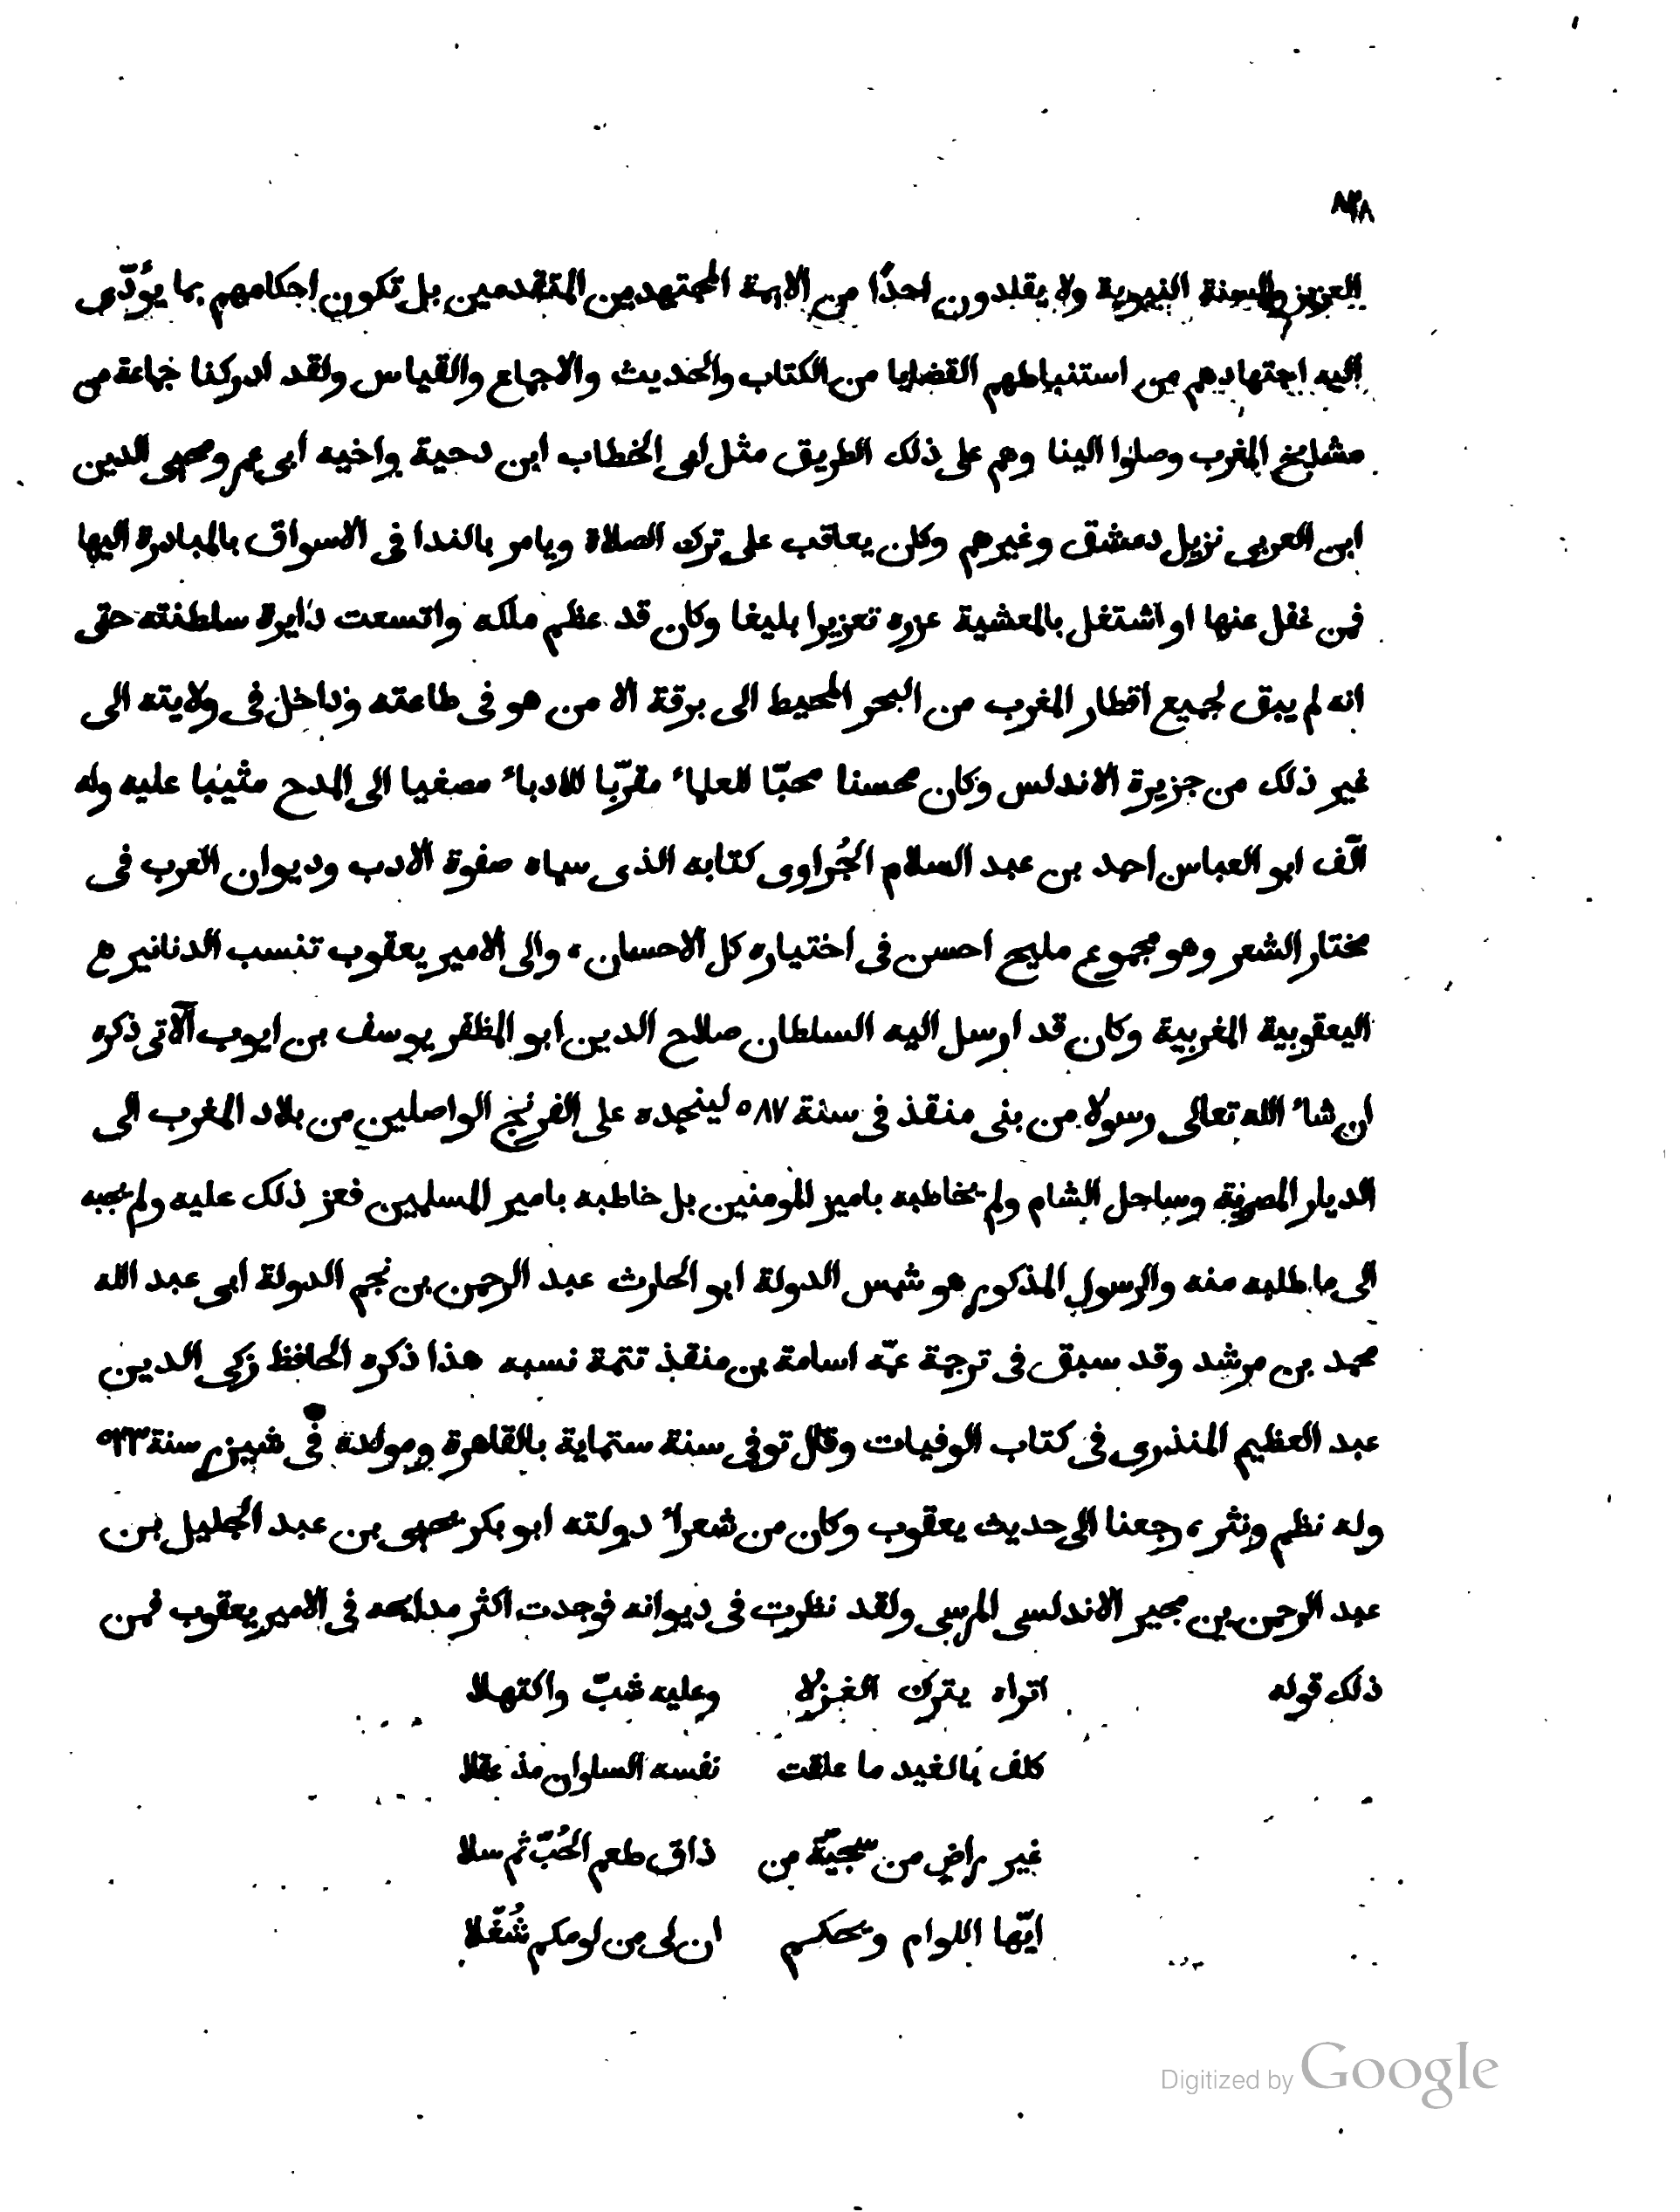 العزيز والسنة النبوية ولا يقلدون احدًا من الايمة المجتهدين المتقدمين بل تكون احكامهم بما يؤدّى
اليه اجتهادهم من استنباطهم القضايا من الكتاب والحديث والاجماع والقياس ولقد ادركنا جماعة من
مشايخ المغرب وصلوا الينا وهم على ذلك الطريق مثل ابى الخطاب ابن دحية واخيه ابى عمر ومحيى الدين
ابن العربى نزيل دمشق وغيرهم وكان يعاقب على ترك الصلاة ويامر بالندا فى الاسواق بالمبادرة اليها
فمن غفل عنها او اشتغل بالمعشية عزره تعزيرا بليغا وكان قد عظم ملكه واتسعت دايرة سلطنته حتى
انه لم يبق لجميع اقطار المغرب من البحر المحيط الى برقة الا من هو فى طاعته وداخل فى ولايته الى
غير ذلك من جزيرة الاندلس وكان محسنا محبّا للعلماء مقرّبا للادباء مصغيا الى المدح مثيبا عليه وله
الّف ابو العباس احمد بن عبد السلام الجُراوى كتابه الذى سماه صفوة الادب وديوان العرب فى
مختار الشعر وهو مجموع مليح احسن فى اختياره كل الاحسان، والى الامير يعقوب تنسب الدنانير
اليعقوبية المغربية وكان قد ارسل اليه السلطان صلاح الدين ابو المظفر يوسف بن ايوب الآتى ذكره
ان شاء الله تعالى رسولا من بنى منقذ فى سنة ٥٨٧ لينجده على الفرنج الواصلين من بلاد المغرب الى
الديار المصرية وساحل الشام ولم يخاطبه بامير المومنين بل خاطبه بامير المسلمين فعز ذلك عليه ولم يجبه
الى ما طلبه منه والرسول المذكور هو شمس الدولة ابو الحارث عبد الرحمن بن نجم الدولة ابى عبد الله
محمد بن مرشد وقد سبق فى ترجمة عمّه اسامة بن منقذ تتمة نسبه هذا ذكره الحافظ زكى الدين
عبد العظيم المنذرى فى كتاب الوفيات وقال توفى سنة ستماية بالقاهرة ومولده فى شيزر سنة ٥٢٣
وله نظم ونثر، رجعنا الى حديث يعقوب وكان من شعراء دولته ابو بكر يحيى بن عبد الجليل بن
عبد الرحمن بن مجير الاندلسى المرسى ولقد نظرت فى ديوانه فوجدت اكثر مدايحه فى الامير يعقوب فمن
ذلك قوله اتراه يترك الغزلا وعليه شبّ واكتهلا
كلف بالغيد ما علقت نفسه السلوان مذ عقلا
غير راض من سجيّة من ذاق طعم الحُبّ ثم سلا
ايّها اللوام ويحكم ان لى من لومكم شُغُلا
Digitized by Google